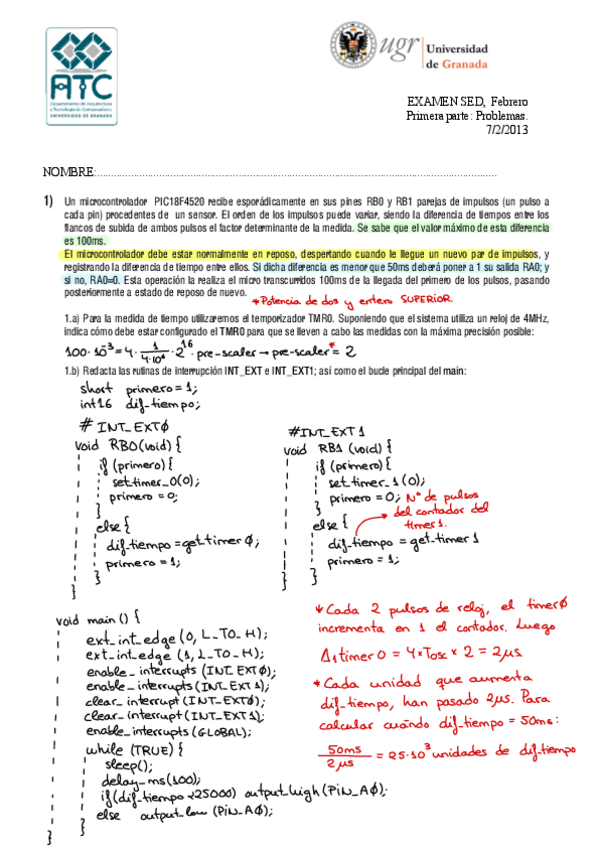 ATC
Departamento de Arquitectura
y Tecnología de Computadores
UNIVERSIDAD DE GRANADA
ugr
Universidad
de Granada
EXAMEN SED, Febrero
Primera parte: Problemas.
7/2/2013
NOMBRE:
1) Un microcontrolador PIC18F4520 recibe esporádicamente en sus pines RB0 y RB1 parejas de impulsos (un pulso a
cada pin) procedentes de un sensor. El orden de los impulsos puede variar, siendo la diferencia de tiempos entre los
flancos de subida de ambos pulsos el factor determinante de la medida. Se sabe que el valor máximo de esta diferencia
es 100ms.
El microcontrolador debe estar normalmente en reposo, despertando cuando le llegue un nuevo par de impulsos, y
registrando la diferencia de tiempo entre ellos. Si dicha diferencia es menor que 50ms deberá poner a 1 su salida RA0; y
si no, RA0=0. Esta operación la realiza el micro transcurridos 100ms de la llegada del primero de los pulsos, pasando
posteriormente a estado de reposo de nuevo.
*Potencia de dos y entero SUPERIOR.
1.a) Para la medida de tiempo utilizaremos el temporizador TMR0. Suponiendo que el sistema utiliza un reloj de 4MHz,
indica cómo debe estar configurado el TMR0 para que se lleven a cabo las medidas con la máxima precisión posible:
100·10⁻³ = 4 · 1/4·10⁶ · 2¹⁶ · pre-scaler → pre-scaler* = 2
1.b) Redacta las rutinas de interrupción INT_EXT e INT_EXT1; así como el bucle principal del main:
short primero = 1;
int16 dif_tiempo;
# INT_EXTØ
void RB0(void) {
if (primero) {
set_timer_0(0);
primero = 0;
}
else {
dif_tiempo = get_timer Ø;
primero = 1;
}
}
#INT_EXT1
void RB1 (void) {
if (primero) {
set_timer_1(0);
primero = 0; Nº de pulsos
del contador del
timer1.
}
else {
dif_tiempo = get_timer1
primero = 1;
}
}
void main () {
ext_int_edge (0, L_TO_H);
ext_int_edge (1, L_TO_H);
enable_interrupts (INT_EXTØ);
enable_interrupts (INT_EXT1);
clear_interrupt (INT_EXTØ);
clear_interrupt (INT_EXT1);
enable_interrupts (GLOBAL);
while (TRUE) {
sleep();
delay_ms(100);
if (dif_tiempo <25000) output_high (PIN_AØ);
else output_low (PIN_AØ);
}
}
* Cada 2 pulsos de reloj, el timerØ
incrementa en 1 el contador. Luego
Δ₁timer0 = 4 × Tosc × 2 = 2µs
* Cada unidad que aumenta
dif_tiempo, han pasado 2µs. Para
calcular cuándo dif_tiempo = 50ms:
50ms/2µs = 25·10³ unidades de dif_tiempo